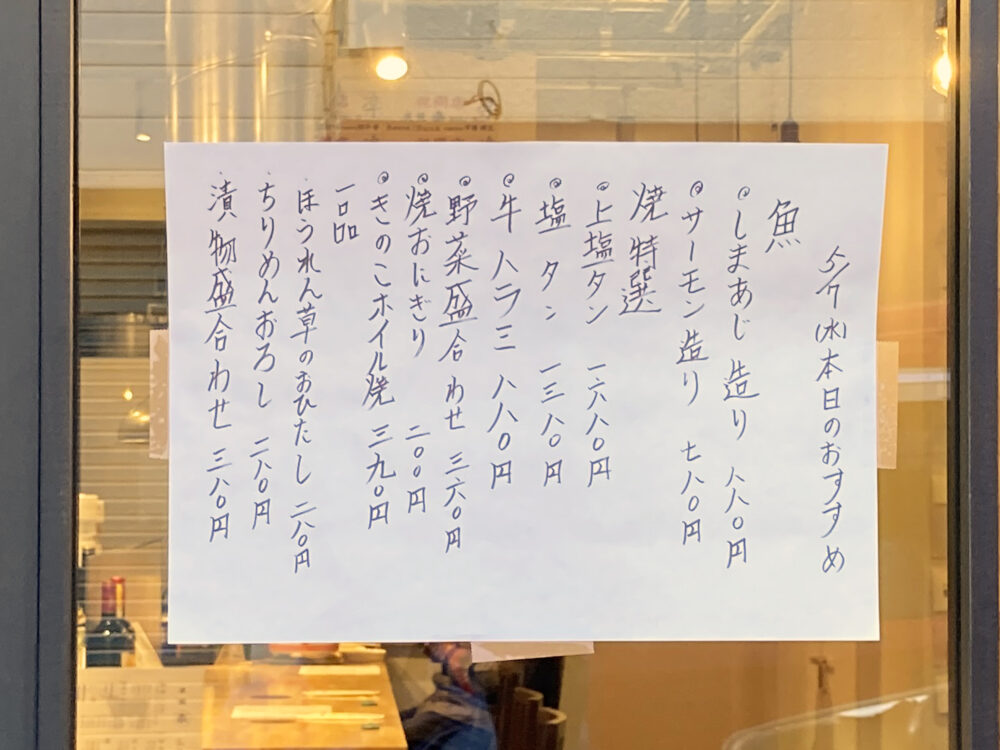 5/7(水)本日のおすすめ
魚
◎しまあじ造り 八八〇円
◎サーモン造り 七八〇円
焼特選
◎上塩タン 一六八〇円
◎塩タン 一三八〇円
◎牛ハラミ 八八〇円
◎野菜盛合わせ 三六〇円
◎焼おにぎり 二〇〇円
◎きのこホイル焼 三九〇円
一品
・ほうれん草のおひたし 二八〇円
・ちりめんおろし 二八〇円
・漬物盛合わせ 三八〇円